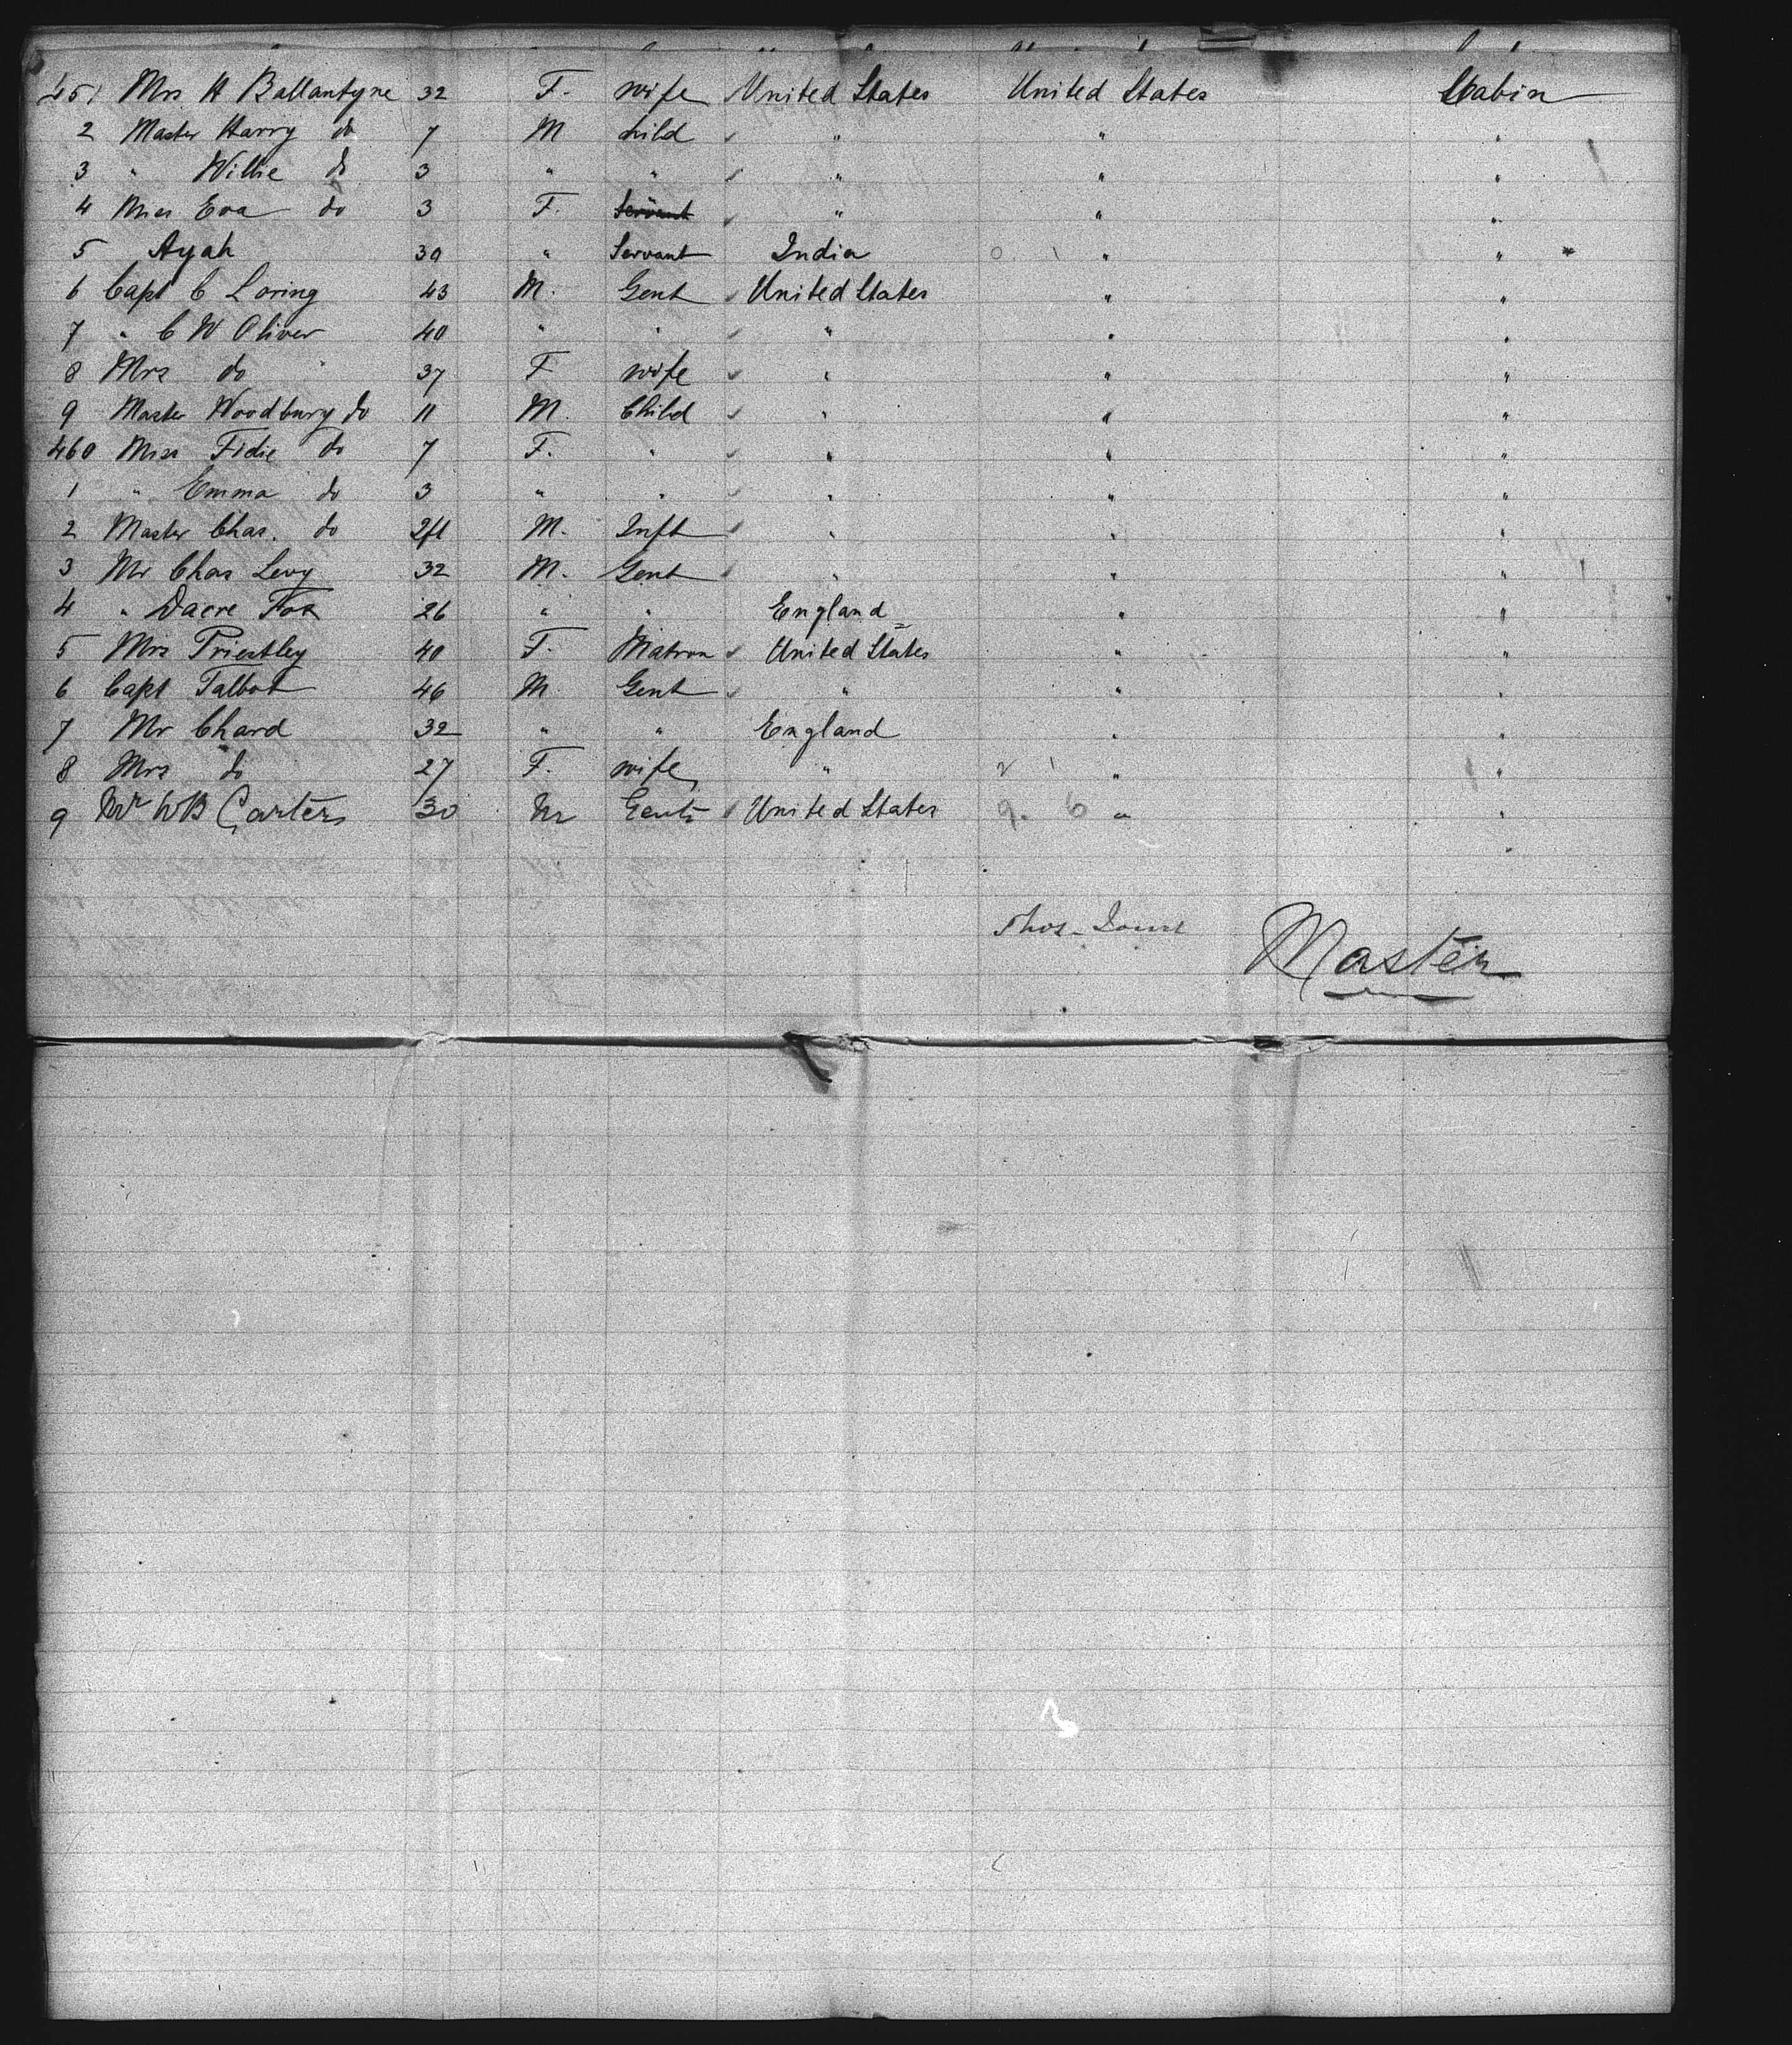 451 Mrs H Ballantyne 32 F. wife United States United States Cabin
2 Master Harry do 7 M child " " "
3 " Willie do 3 " " " " "
4 Miss Eva do 3 F. Servant " " "
5 Ayah 30 " Servant India " "
6 Capt C Loring 43 M. Gent United States " "
7 " C W Oliver 40 " " " " "
8 Mrs do 37 F wife " " "
9 Master Woodbury do 11 M. Child " " "
460 Miss Fidie do 7 F. " " " "
1 " Emma do 3 " " " " "
2 Master Chas. do M. Inft " " "
3 Mr Chas Levy 32 M. Gent " " "
4 " Dacre Fox 26 " " England " "
5 Mrs Priestley 40 F. Matron United States " "
6 Capt Talbot 46 M. Gent " " "
7 Mr Chard 32 " " England " "
8 Mrs do 27 F. wife " " "
9 Mr WB Carter 30 M Gent United States " "
Thos.
Master